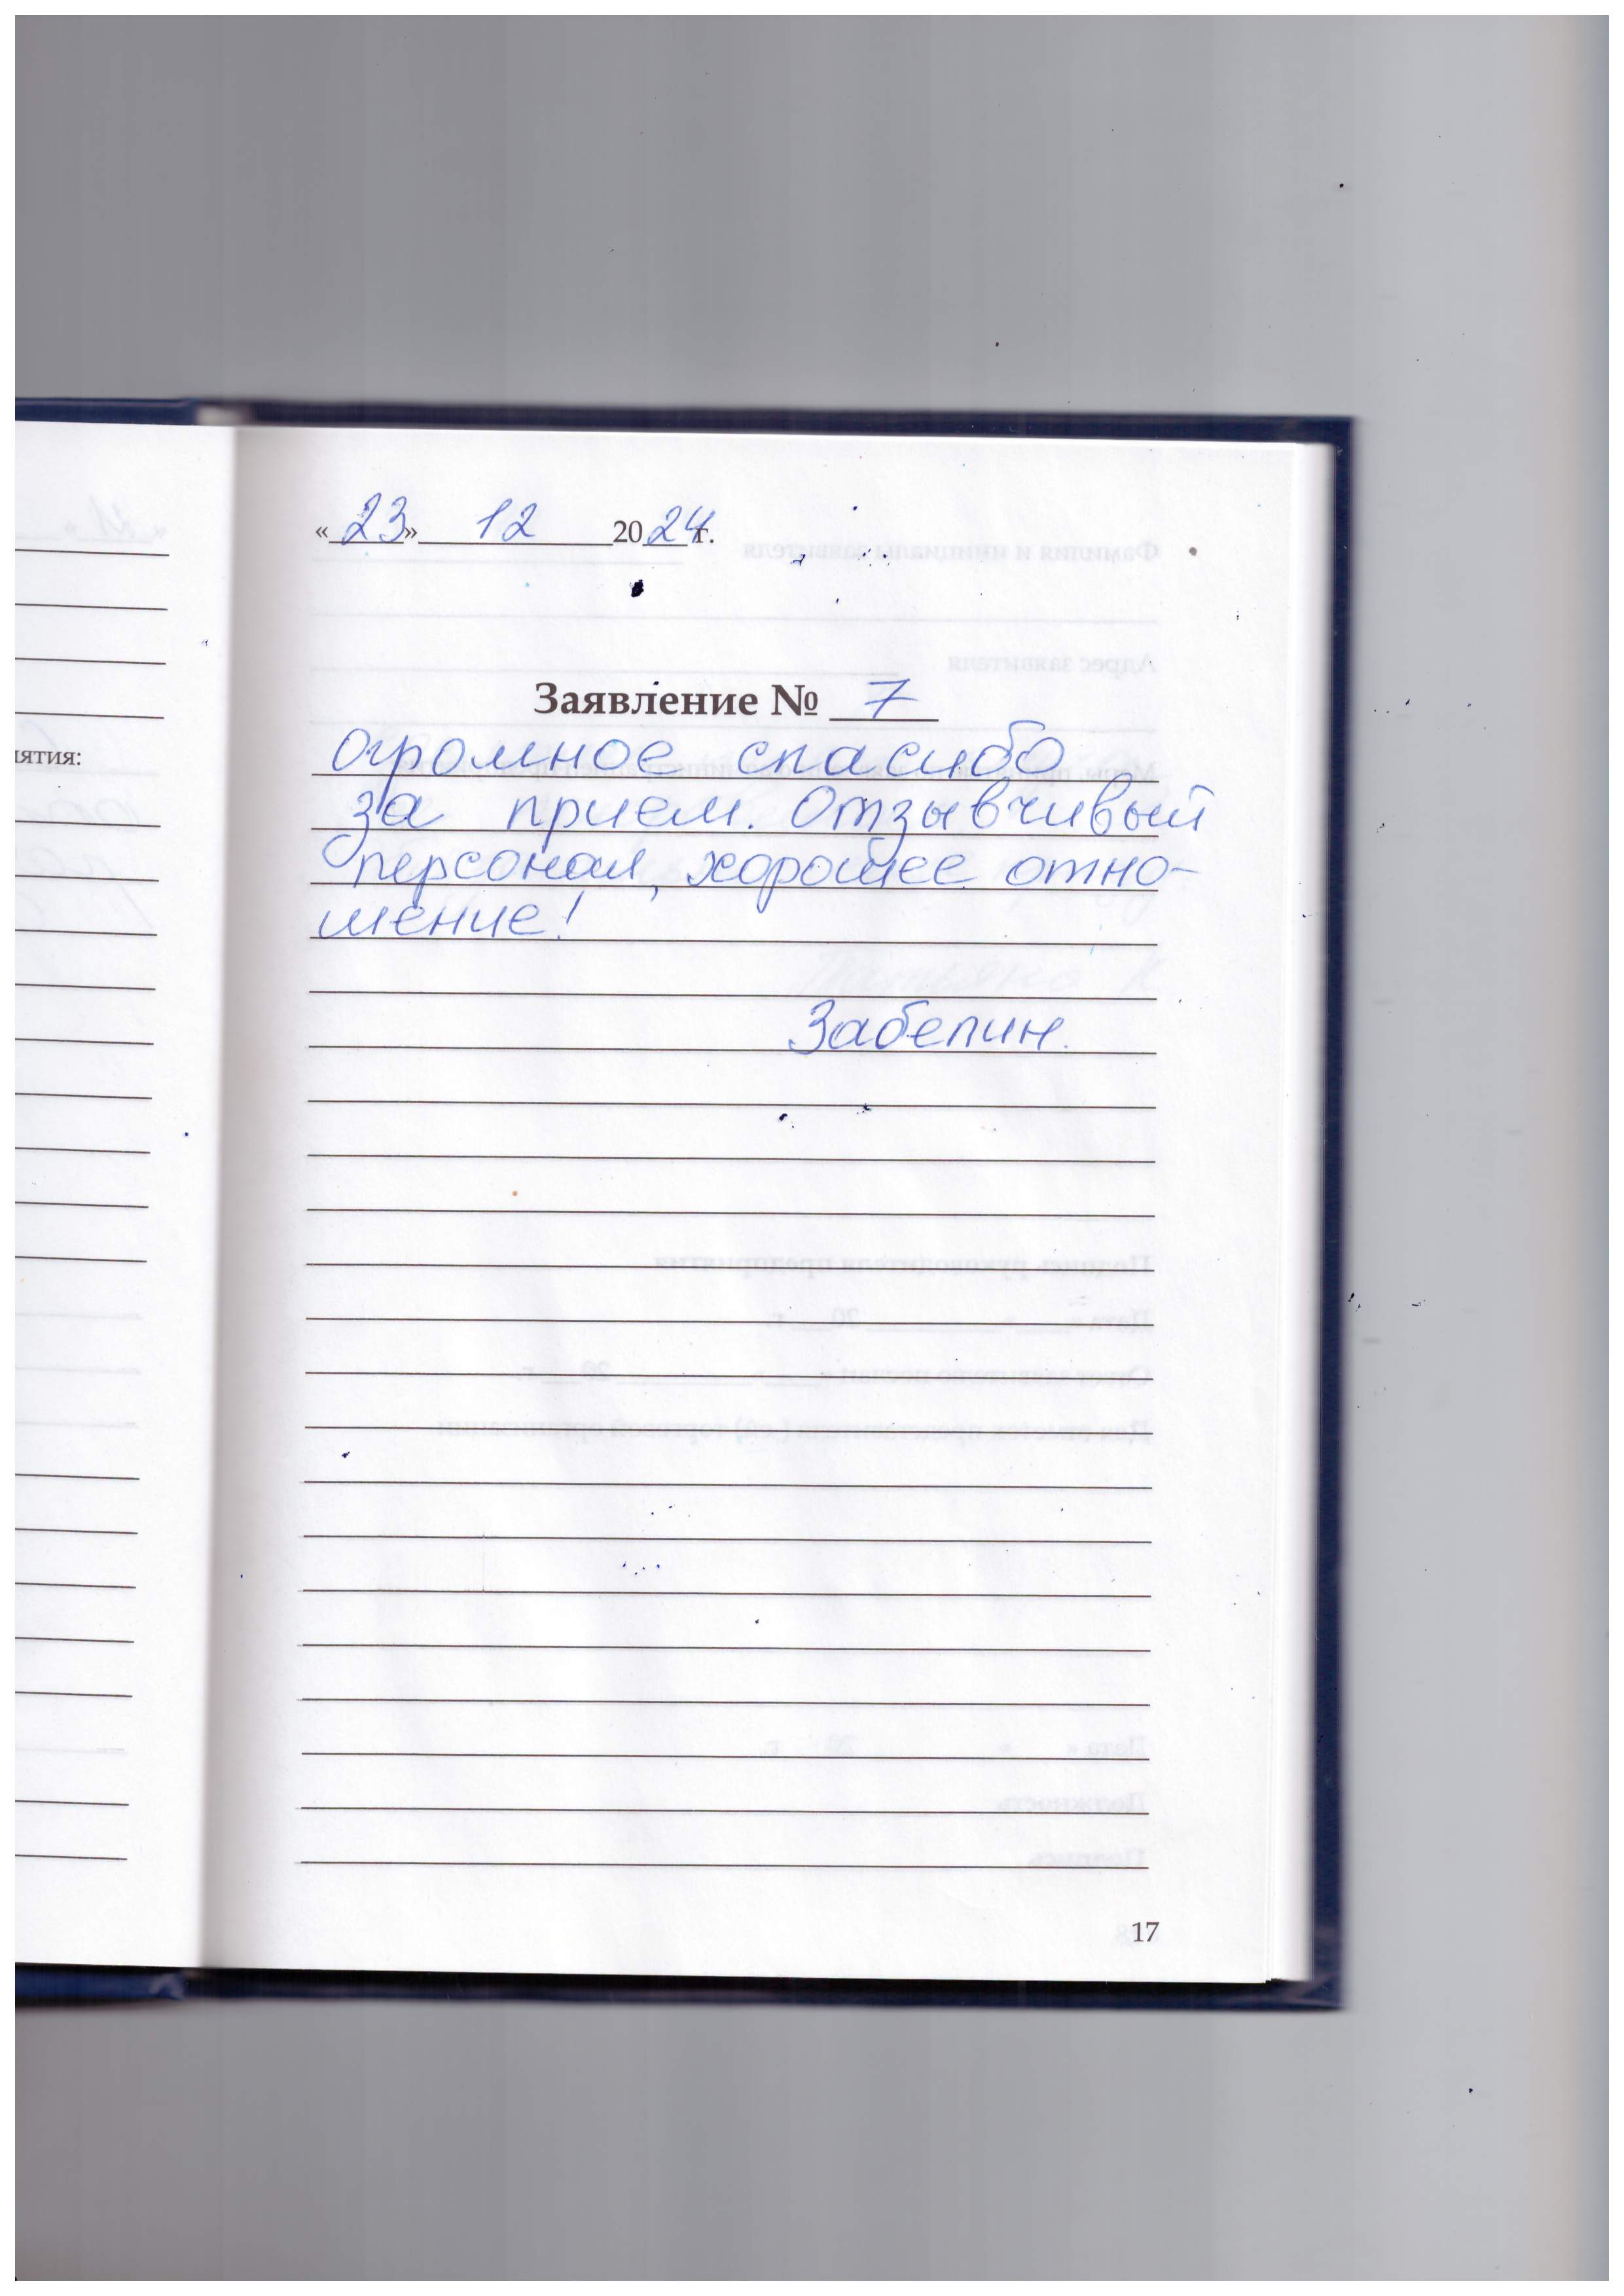 «23» 12 2024 г.
Заявление № 7
огромное спасибо
за прием. Отзывчивый
персонал, хорошее отно-
шение!
Забелин.
ятия:
17